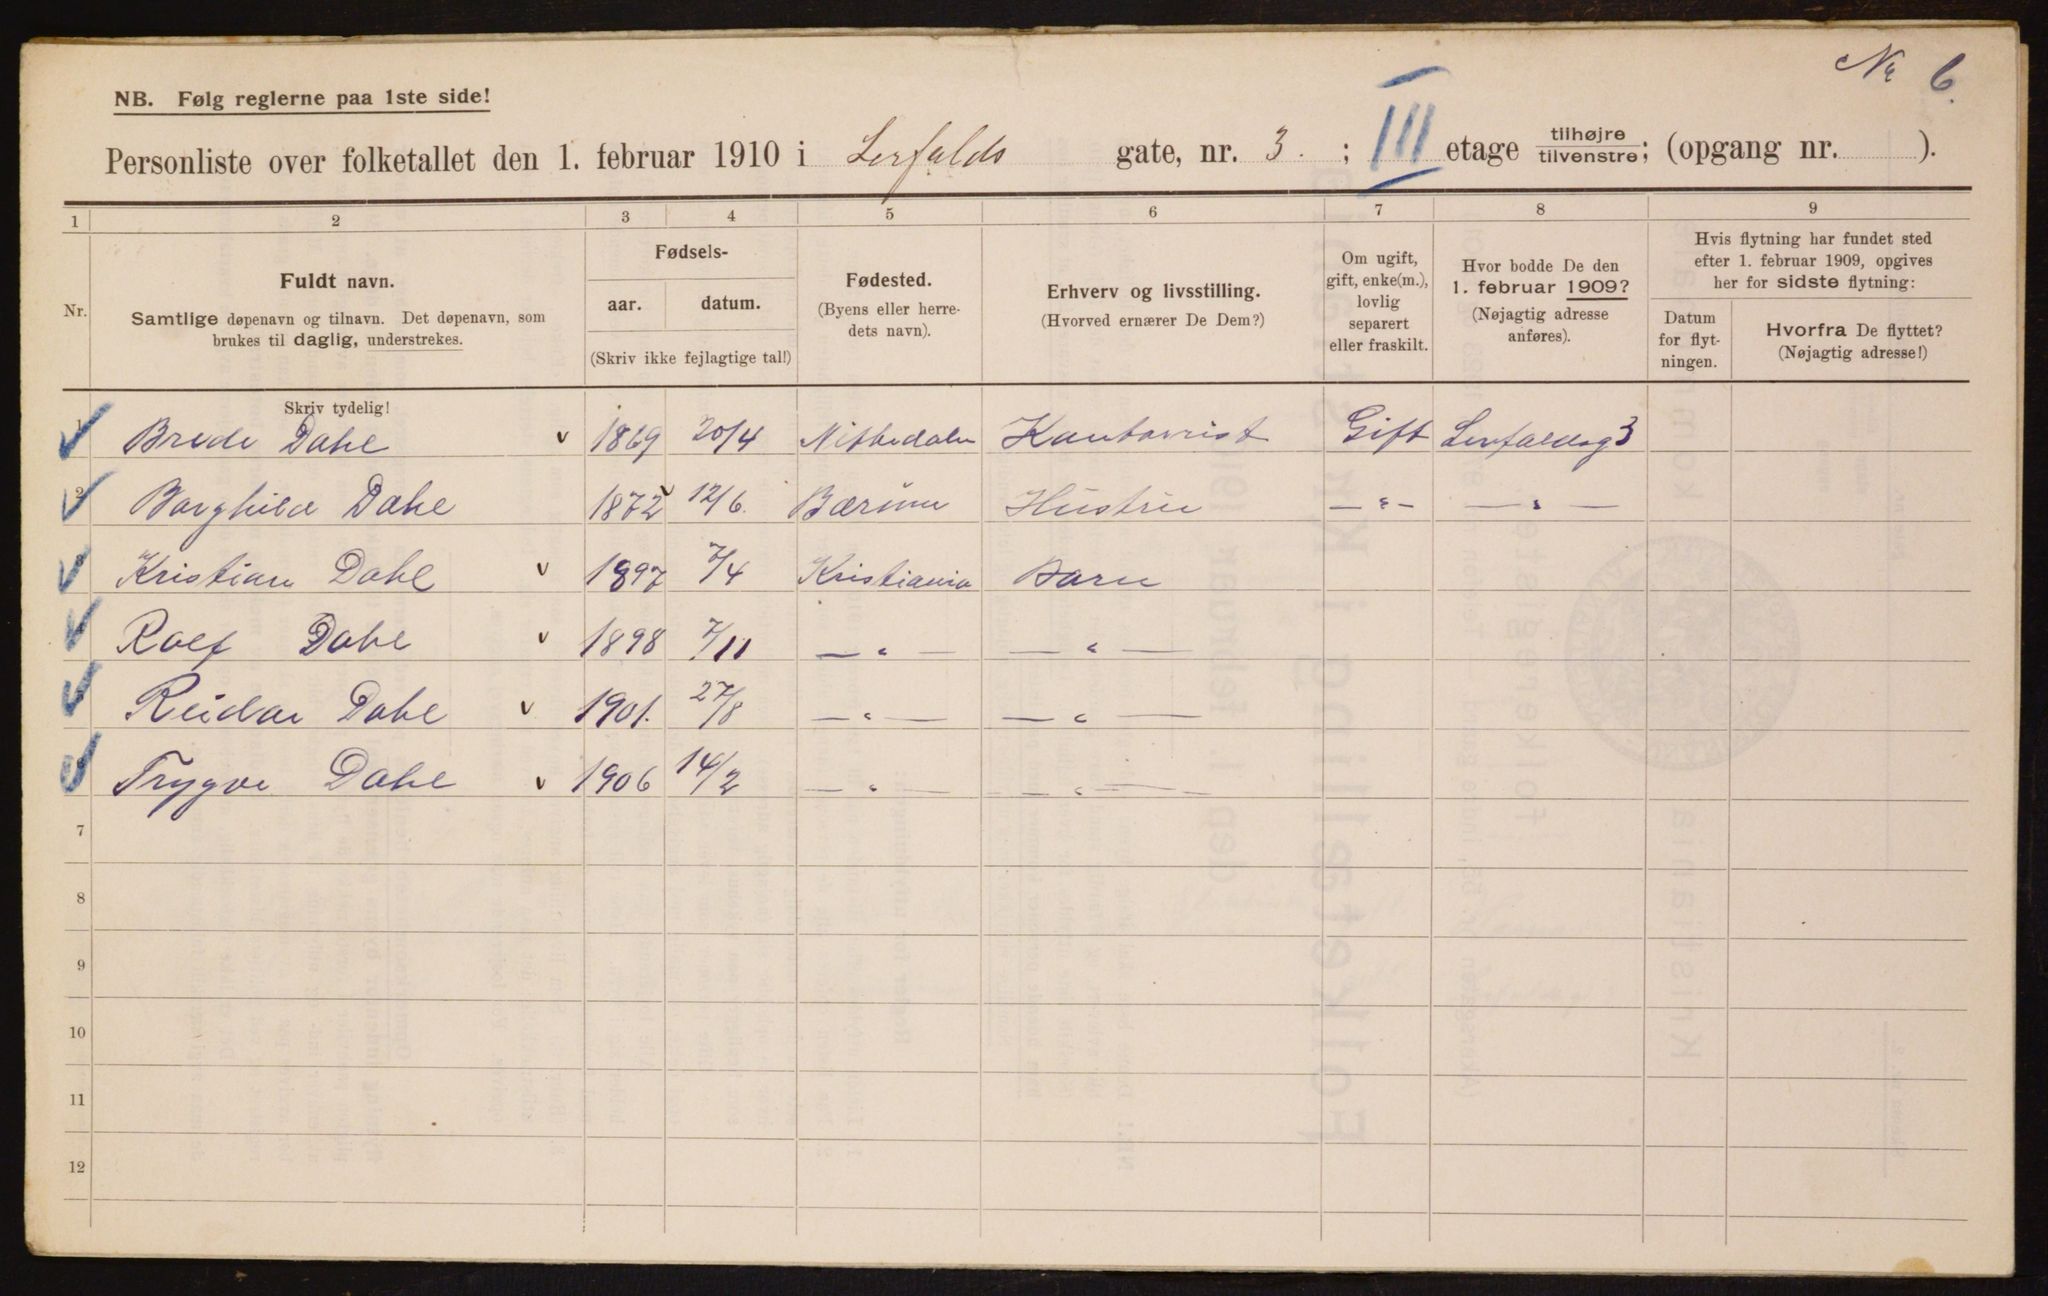 No 6.
NB. Følg reglerne paa 1ste side!
Personliste over folketallet den 1. februar 1910 i Lerfalds gate, nr. 3. ; III etage tilhøjre/tilvenstre; (opgang nr. ).
1 2 3 4 5 6 7 8 9
Nr.
Fuldt navn.
Samtlige døpenavn og tilnavn. Det døpenavn, som
brukes til daglig, understrekes.
Skriv tydelig!
Fødsels-
aar. datum.
(Skriv ikke fejlagtige tal!)
Fødested.
(Byens eller herre-
dets navn).
Erhverv og livsstilling.
(Hvorved ernærer De Dem?)
Om ugift,
gift, enke(m.),
lovlig
separert
eller fraskilt.
Hvor bodde De den
1. februar 1909?
(Nøjagtig adresse
anføres).
Hvis flytning har fundet sted
efter 1. februar 1909, opgives
her for sidste flytning:
Datum
for flyt-
ningen.
Hvorfra De flyttet?
(Nøjagtig adresse!)
1 Brede Dahl v 1869 20/4 Nittedalen Kontorrist Gift Lerfaldsg 3
2 Borghild Dahl 1872 12/6. Bærum Hustru — " — — " —
3 Kristian Dahl v 1897 7/4 Kristiania Barn
4 Rolf Dahl v 1898 7/11 — " — — " —
5 Reidar Dahl v 1901. 27/8 — " — — " —
6 Trygve Dahl v 1906 14/2 — " — — " —
7
8
9
10
11
12